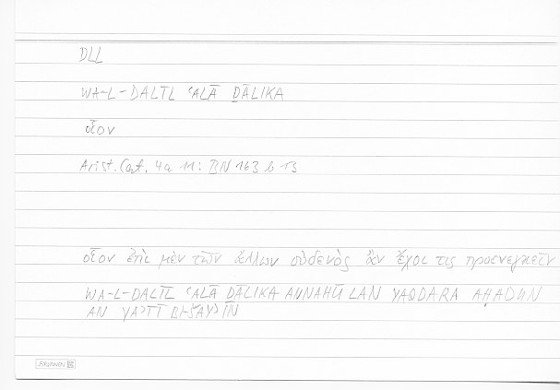 DLL
WA-L-DALĪL ʿALĀ ḎĀLIKA
οἷον
Arist. Cat. 4a 11: BN 163 b 13
οἷον ἐπὶ μὲν τῶν ἄλλων οὐδενὸς ἂν ἔχοι τις προενεγκεῖν
WA-L-DALĪL ʿALĀ ḎĀLIKA ANNAHŪ LAN YAQDARA AḤADUN
AN YAʾTĪ BI-ŠAYʾIN